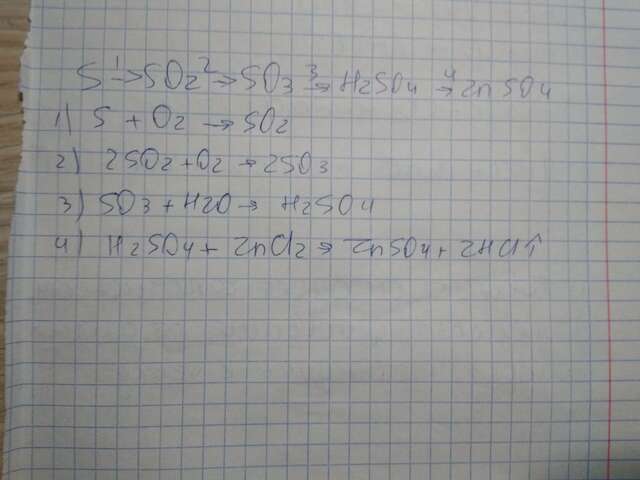 S ¹→ SO2 ²→ SO3 ³→ H2SO4 ⁴→ ZnSO4
1) S + O2 → SO2
2) 2SO2 + O2 → 2SO3
3) SO3 + H2O → H2SO4
4) H2SO4 + ZnCl2 → ZnSO4 + 2HCl↑